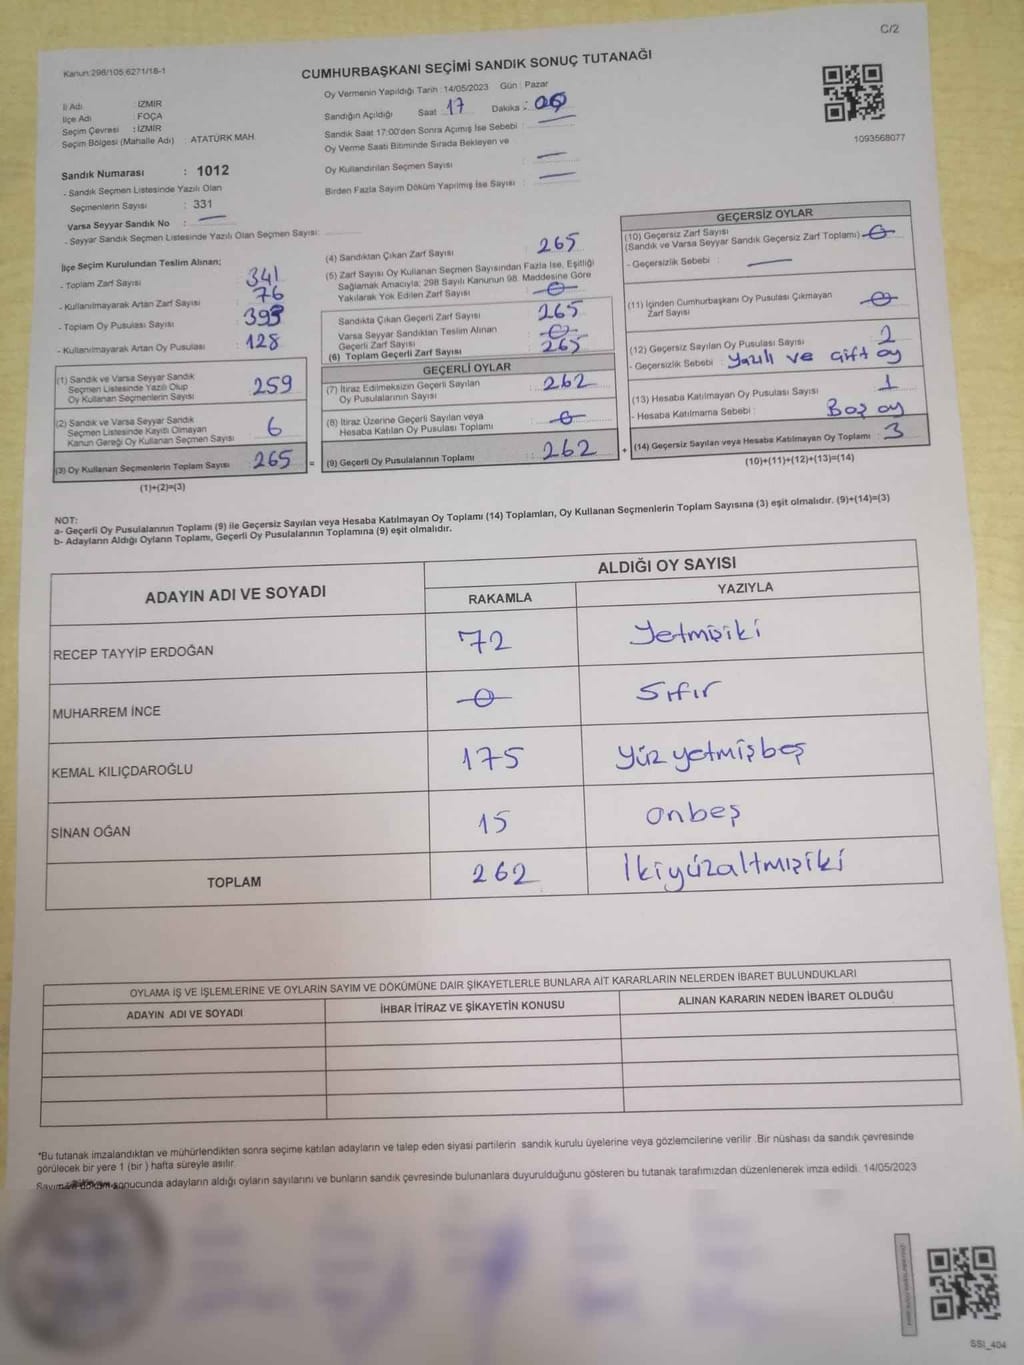 C/2
Kanun:298/105 6271/18-1
CUMHURBAŞKANI SEÇİMİ SANDIK SONUÇ TUTANAĞI
İl Adı : İZMİR
İlçe Adı : FOÇA
Seçim Çevresi : İZMİR
Seçim Bölgesi (Mahalle Adı) : ATATÜRK MAH.
Oy Vermenin Yapıldığı Tarih :14/05/2023 Gün : Pazar
Sandığın Açıldığı Saat 17 Dakika :
Sandık Saat 17:00'den Sonra Açılmış İse Sebebi :
Oy Verme Saati Bitiminde Sırada Bekleyen ve
Oy Kullandırılan Seçmen Sayısı :
Birden Fazla Sayım Döküm Yapılmış İse Sayısı :
1093568077
Sandık Numarası : 1012
- Sandık Seçmen Listesinde Yazılı Olan
Seçmenlerin Sayısı : 331
Varsa Seyyar Sandık No :
- Seyyar Sandık Seçmen Listesinde Yazılı Olan Seçmen Sayısı:
İlçe Seçim Kurulundan Teslim Alınan;
- Toplam Zarf Sayısı : 341
- Kullanılmayarak Artan Zarf Sayısı : 76
- Toplam Oy Pusulası Sayısı : 393
- Kullanılmayarak Artan Oy Pusulası : 128
(1) Sandık ve Varsa Seyyar Sandık
Seçmen Listesinde Yazılı Olup
Oy Kullanan Seçmenlerin Sayısı 259
(2) Sandık ve Varsa Seyyar Sandık
Seçmen Listesinde Kayıtlı Olmayan
Kanun Gereği Oy Kullanan Seçmen Sayısı 6
(3) Oy Kullanan Seçmenlerin Toplam Sayısı 265 =
(1)+(2)=(3)
(4) Sandıktan Çıkan Zarf Sayısı 265
(5) Zarf Sayısı Oy Kullanan Seçmen Sayısından Fazla İse, Eşitliği
Sağlamak Amacıyla; 298 Sayılı Kanunun 98. Maddesine Göre
Yakılarak Yok Edilen Zarf Sayısı 0
Sandıkta Çıkan Geçerli Zarf Sayısı 265
Varsa Seyyar Sandıktan Teslim Alınan
Geçerli Zarf Sayısı 0
(6) Toplam Geçerli Zarf Sayısı 265
GEÇERLİ OYLAR
(7) İtiraz Edilmeksizin Geçerli Sayılan
Oy Pusulalarının Sayısı 262
(8) İtiraz Üzerine Geçerli Sayılan veya
Hesaba Katılan Oy Pusulası Toplamı 0
(9) Geçerli Oy Pusulalarının Toplamı 262 +
GEÇERSİZ OYLAR
(10) Geçersiz Zarf Sayısı
(Sandık ve Varsa Seyyar Sandık Geçersiz Zarf Toplamı) 0
- Geçersizlik Sebebi :
(11) İçinden Cumhurbaşkanı Oy Pusulası Çıkmayan
Zarf Sayısı 0
(12) Geçersiz Sayılan Oy Pusulası Sayısı 2
- Geçersizlik Sebebi : Yazılı ve Çift oy
(13) Hesaba Katılmayan Oy Pusulası Sayısı 1
- Hesaba Katılmama Sebebi : Boş oy
(14) Geçersiz Sayılan veya Hesaba Katılmayan Oy Toplamı 3
(10)+(11)+(12)+(13)=(14)
NOT:
a- Geçerli Oy Pusulalarının Toplamı (9) ile Geçersiz Sayılan veya Hesaba Katılmayan Oy Toplamı (14) Toplamları, Oy Kullanan Seçmenlerin Toplam Sayısına (3) eşit olmalıdır. (9)+(14)=(3)
b- Adayların Aldığı Oyların Toplamı, Geçerli Oy Pusulalarının Toplamına (9) eşit olmalıdır.
ADAYIN ADI VE SOYADI ALDIĞI OY SAYISI
RAKAMLA YAZIYLA
RECEP TAYYİP ERDOĞAN 72 Yetmişiki
MUHARREM İNCE 0 Sıfır
KEMAL KILIÇDAROĞLU 175 Yüz yetmişbeş
SİNAN OĞAN 15 Onbeş
TOPLAM 262 İkiyüzaltmışiki
OYLAMA İŞ VE İŞLEMLERİNE VE OYLARIN SAYIM VE DÖKÜMÜNE DAİR ŞİKAYETLERLE BUNLARA AİT KARARLARIN NELERDEN İBARET BULUNDUKLARI
ADAYIN ADI VE SOYADI İHBAR İTİRAZ VE ŞİKAYETİN KONUSU ALINAN KARARIN NEDEN İBARET OLDUĞU
*Bu tutanak imzalandıktan ve mühürlendikten sonra seçime katılan adayların ve talep eden siyasi partilerin sandık kurulu üyelerine veya gözlemcilerine verilir .Bir nüshası da sandık çevresinde
görülecek bir yere 1 (bir ) hafta süreyle asılır.
Sayım döküm sonucunda adayların aldığı oyların sayılarını ve bunların sandık çevresinde bulunanlara duyurulduğunu gösteren bu tutanak tarafımızdan düzenlenerek imza edildi. 14/05/2023
SSI_404